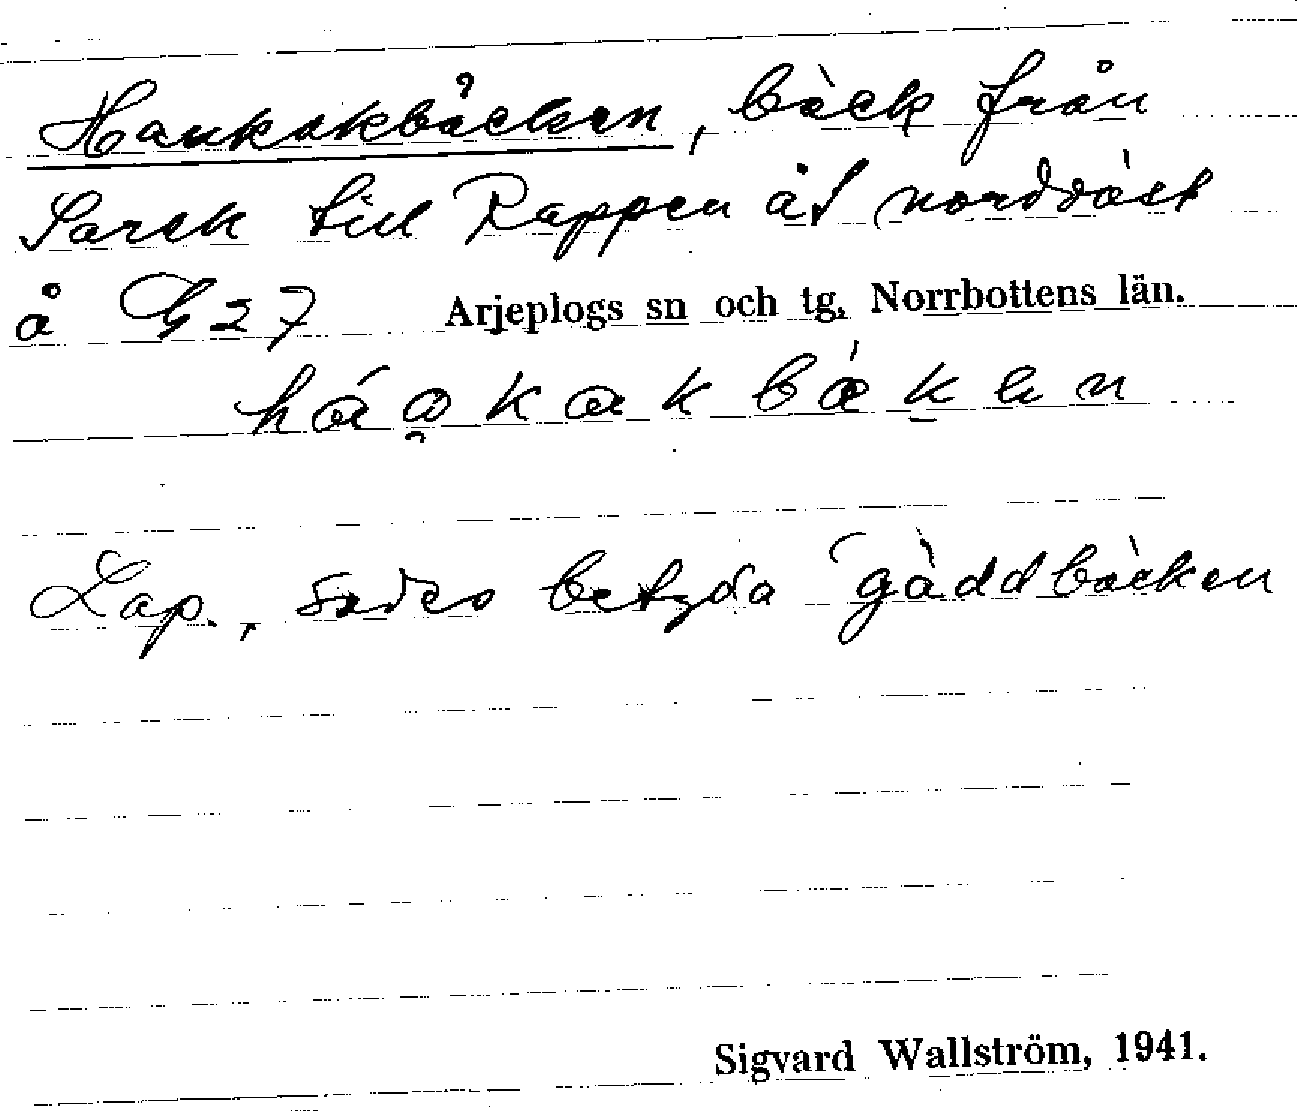 Haukakbäcken, bäck från
Sarek till Rappen åt nordväst
å G 27 Arjeplogs sn och tg, Norrbottens län.
háọkakbáken
Lap., sades betyda "gäddbäcken
Sigvard Wallström, 1941.